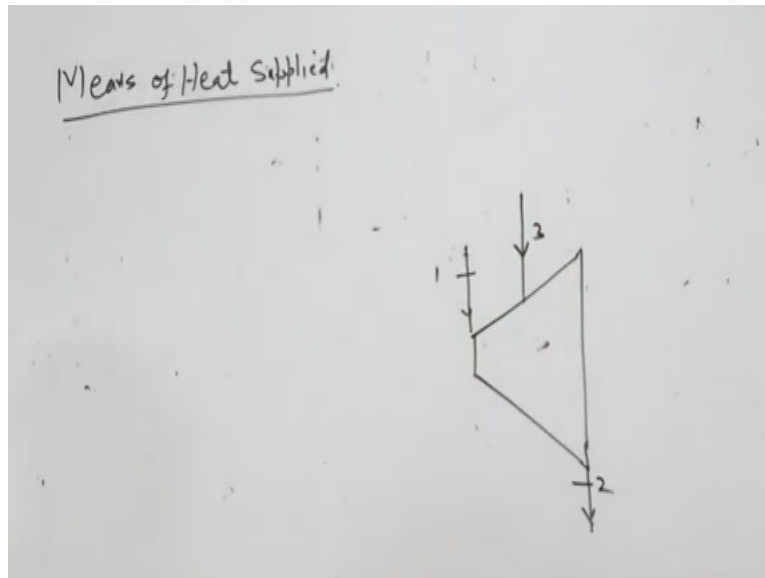 Means of Heat Supplied.
3
1
2